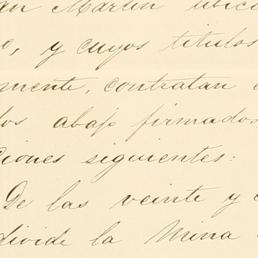 an Martin ubica
o, y cuyos titulos
mente, contratan
los abajo firmados
ciones siguientes:
De las veinte y
divide la Mina